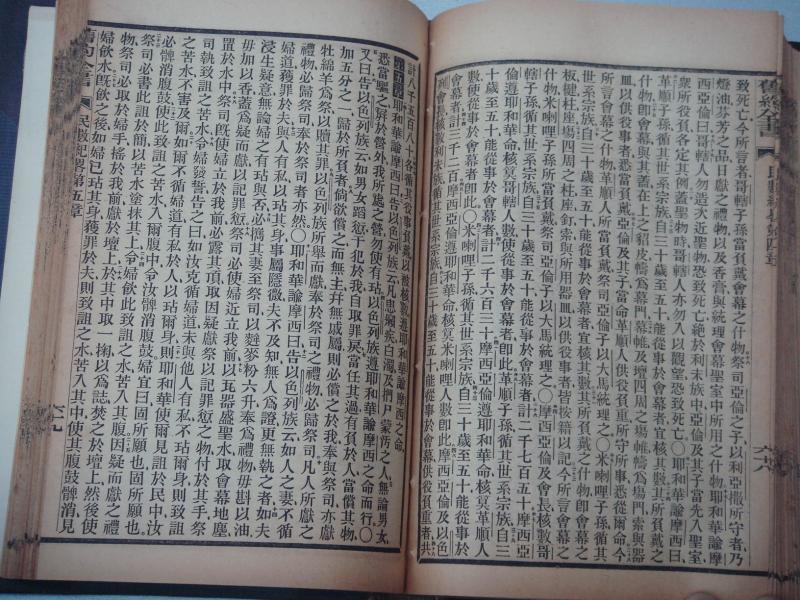 舊約全書 民數紀畧第四章 六八
致死亡今所言者哥轄子孫當負戴會幕之什物祭司亞倫之子以利亞撒所守者乃
燈油芬芳之品日獻之禮物以及香膏與統理會幕聖室中所用之什物耶和華諭摩
西亞倫曰哥轄人勿造次近聖物恐致死亡絕於利未族中亞倫及其子當先入聖室
衆所役負各定其例蓋聖物時哥轄人亦勿入以觀望恐致死亡〇耶和華諭摩西曰
革順子孫循其世系宗族自三十歲至五十能從事於會幕者宜核其數其所負戴之
什物卽會幕與其蓋在上之貂皮幬為幕門幕帷及壇四周之場帷幬為場門索與器
皿以供役事者皆當負戴亞倫及其子當命革順人供役負重所守所事悉從爾命今
所言會幕之什物革順人所當負戴祭司亞倫子以大馬統理之〇米喇哩子孫循其
世系宗族自三十歲至五十能從事於會幕者宜核其數其所負戴之什物卽會幕之
板楗柱座場四周之柱座釘索與所用器皿以供役事者皆按籍以記今所言會幕之
什物米喇哩子孫所當負戴祭司亞倫子以大馬統理之〇摩西亞倫及會長核數哥
轄子孫循其世系宗族自三十歲至五十能從事於會幕者計二千七百五十摩西亞
倫遵耶和華命核哥轄人數使從事於會幕卽此〇革順子孫循其世系宗族自三
十歲至五十能從事於會幕者計二千六百三十摩西亞倫遵耶和華命核革順人
數卽此〇米喇哩子孫循其世系宗族自三十歲至五十能從事於
會幕者計三千二百摩西亞倫遵耶和華命核米喇哩人數卽此〇摩西亞倫及以色
列會長核利未人循其世系宗族自三十歲至五十能從事於會幕供役負重者共
計八千五百八十各循其役事負戴以被核數遵耶和華諭摩西之命
第五章 耶和華諭摩西曰告以色列族云凡患癩疾白濁及捫尸蒙污之人無論男女
悉當驅之屏於營外我所處之營勿使有玷以色列族遵耶和華諭摩西之命而行〇
又曰告以色列族云如男女蹈愆于犯於我自取罪戾當任其過有負於人當償其物
加五分之一歸於所負者倘欲償之而無主幷無戚屬則必償之於我奉與祭司亦獻
牡綿羊為祭以贖其罪以色列族所舉而獻奉於祭司之禮物必歸祭司凡人所獻之
禮物必歸祭司奉於祭司者亦然〇耶和華諭摩西曰告以色列族云如人之妻不循
婦道獲罪於夫與人有私以玷其身事屬隱微夫不及知無人為證更無執之者如夫
浸生疑意無論婦之有玷與否必攜其妻至祭司以麰麥粉六升奉為禮物毋斟以油
毋加以香蓋為疑而獻以記罪愆祭司必使婦近立我前以瓦器盛聖水取會幕地塵
置於水中祭司旣使婦立於我前必露其頂取因疑獻祭以記罪愆之物付於其手祭
司執致詛之苦水令婦發誓告之一曰如汝克循婦道未與他人有私不玷於夫則致詛
之苦水不害及爾如爾不循婦道有私於人以玷爾身則耶和華使爾見詛於民中汝
必髀消腹鼓使此致詛之水入爾腹中令汝髀消腹鼓婦宜曰固所願也固所願也
祭司必書此詛於簡以苦水塗抹其上令婦飲此致詛之苦水苦入其腹因疑而獻之禮
祭司必取於婦手搖於我前獻於壇上於其中取一掬以為誌焚之於壇上然後使
婦飲水旣飲之後如婦已玷其身獲罪於夫則致詛之水苦入其中使其腹鼓髀消見
舊約全書 民數紀畧第五章 六九